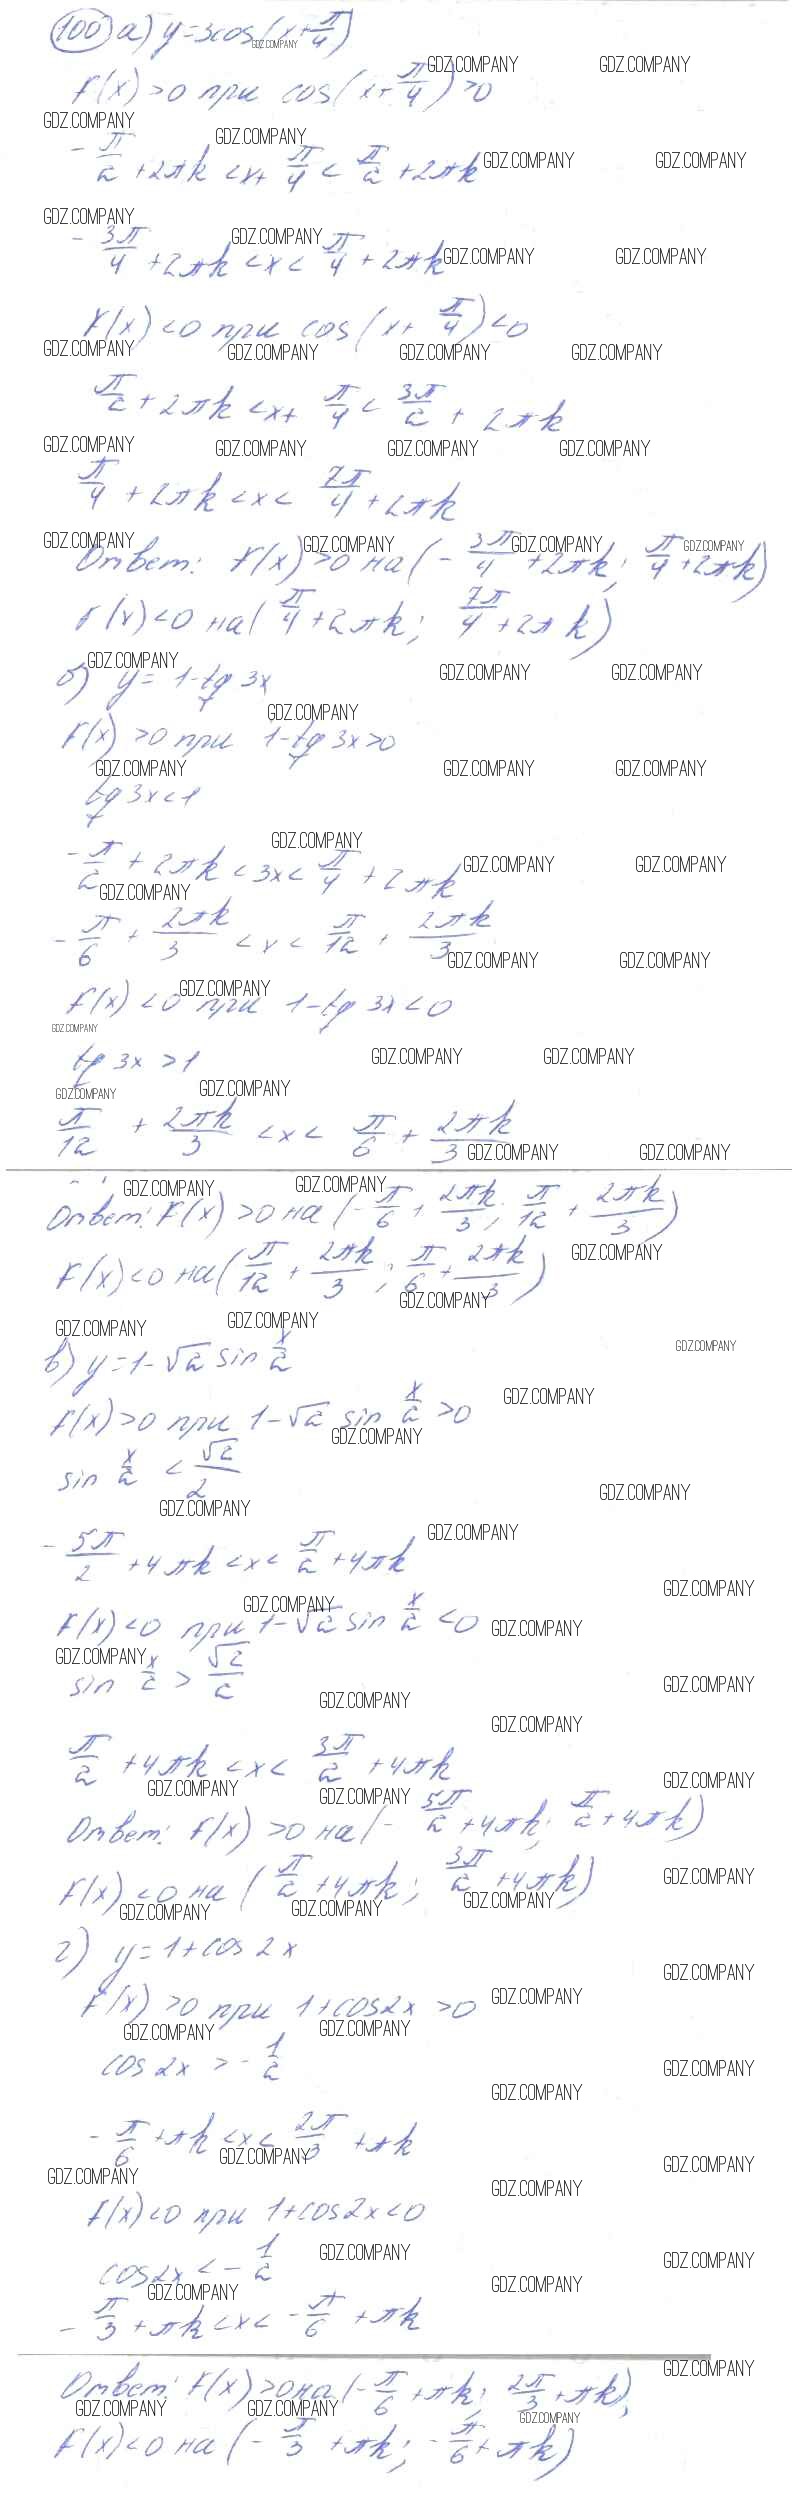 100 а) y=3cos(x+π/4)
f(x)>0 при cos(x+π/4)>0
-π/2+2πk<x+π/4<π/2+2πk
-3π/4+2πk<x<π/4+2πk
f(x)<0 при cos(x+π/4)<0
π/2+2πk<x+π/4<3π/2+2πk
π/4+2πk<x<7π/4+2πk
Ответ: f(x)>0 на (-3π/4+2πk; π/4+2πk)
f(x)<0 на (π/4+2πk; 7π/4+2πk)
б) y=1-tg 3x
f(x)>0 при 1-tg 3x>0
tg 3x<1
-π/2+2πk<3x<π/4+2πk
-π/6+2πk/3<x<π/12+2πk/3
f(x)<0 при 1-tg 3x<0
tg 3x>1
π/12+2πk/3<x<π/6+2πk/3
Ответ: f(x)>0 на (-π/6+2πk/3; π/12+2πk/3)
f(x)<0 на (π/12+2πk/3; π/6+2πk/3)
в) y=1-√2 sin x/2
f(x)>0 при 1-√2 sin x/2>0
sin x/2<√2/2
-5π/2+4πk<x<π/2+4πk
f(x)<0 при 1-√2 sin x/2<0
sin x/2>√2/2
π/2+4πk<x<3π/2+4πk
Ответ: f(x)>0 на (-5π/2+4πk; π/2+4πk)
f(x)<0 на (π/2+4πk; 3π/2+4πk)
г) y=1+cos 2x
f(x)>0 при 1+cos2x>0
cos 2x>-1/2
-π/6+πk<x<2π/3+πk
f(x)<0 при 1+cos2x<0
cos2x<-1/2
-π/3+πk<x<-π/6+πk
Ответ: f(x)>0 на (-π/6+πk; 2π/3+πk),
f(x)<0 на (-π/3+πk; -π/6+πk)
GDZ.COMPANY